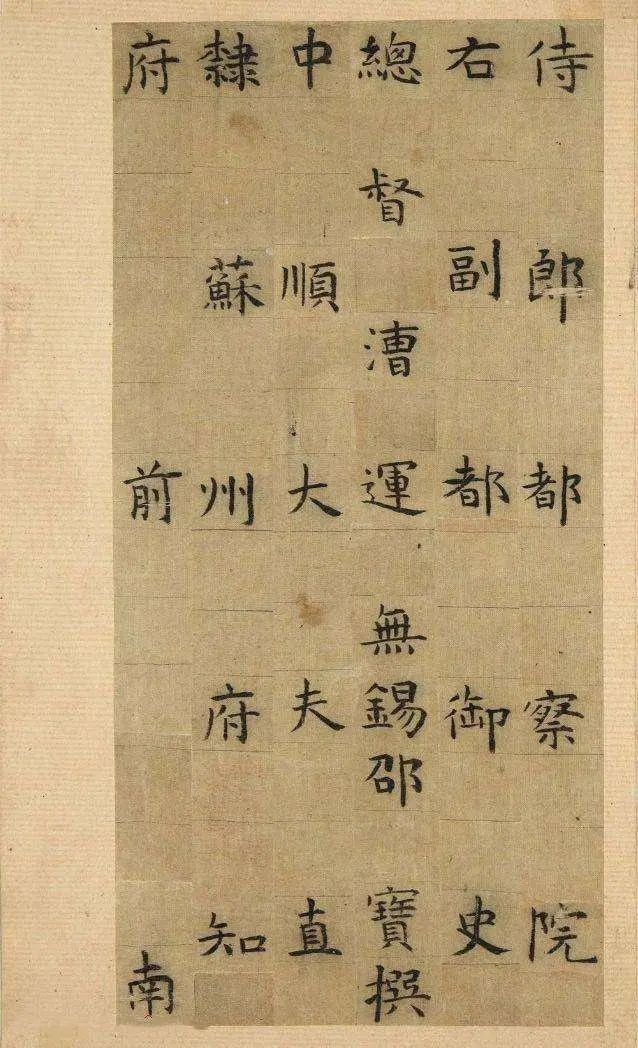 侍郎都察院
右副都御史
總督漕運無錫邵寶撰
中順大夫直
隸蘇州府知
府前南